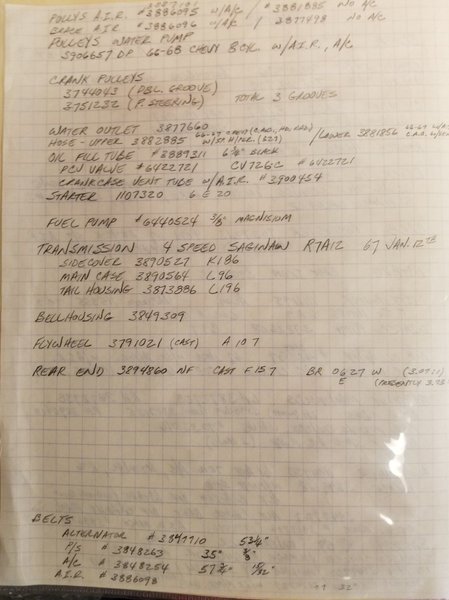 PULLYS A.I.R. #3886095 W/A/C / #3881885 NO A/C
BRACE A.I.R #3886096 W/A/C / 3877498 NO A/C
PULLEYS WATER PUMP
3906657 DP 66-68 CHEVY 8CYL W/A.I.R., A/C
CRANK PULLEYS
3744043 (DBL. GROOVE)
3751232 (P. STEERING) TOTAL 3 GROOVES
WATER OUTLET 3877660
HOSE - UPPER 3882885 / LOWER 3881856
OIL FILL TUBE #3889311 6 1/8" BLACK
PCV VALVE #6422721 CV726C #6422721
CRANKCASE VENT TUBE W/A.I.R. #3900454
STARTER 1107320 6 E 20
FUEL PUMP #6440524 3/8" MAGNISIUM
TRANSMISSION 4 SPEED SAGINAW R7A12 67 JAN. 12TH
SIDECOVER 3890527 K186
MAIN CASE 3890564 L96
TAIL HOUSING 3873886 L196
BELLHOUSING 3849309
FLYWHEEL 3791021 (CAST) A 10 7
REAR END 3894860 NF CAST F157 BR 0627 W (3.07:1)
E (PRESENTLY 3.73
BELTS
ALTERNATOR #3847710 53 1/4"
P/S #3848263 35" 3/8"
A/C #3848254 57 3/4" 15/32"
A.I.R. #3886098